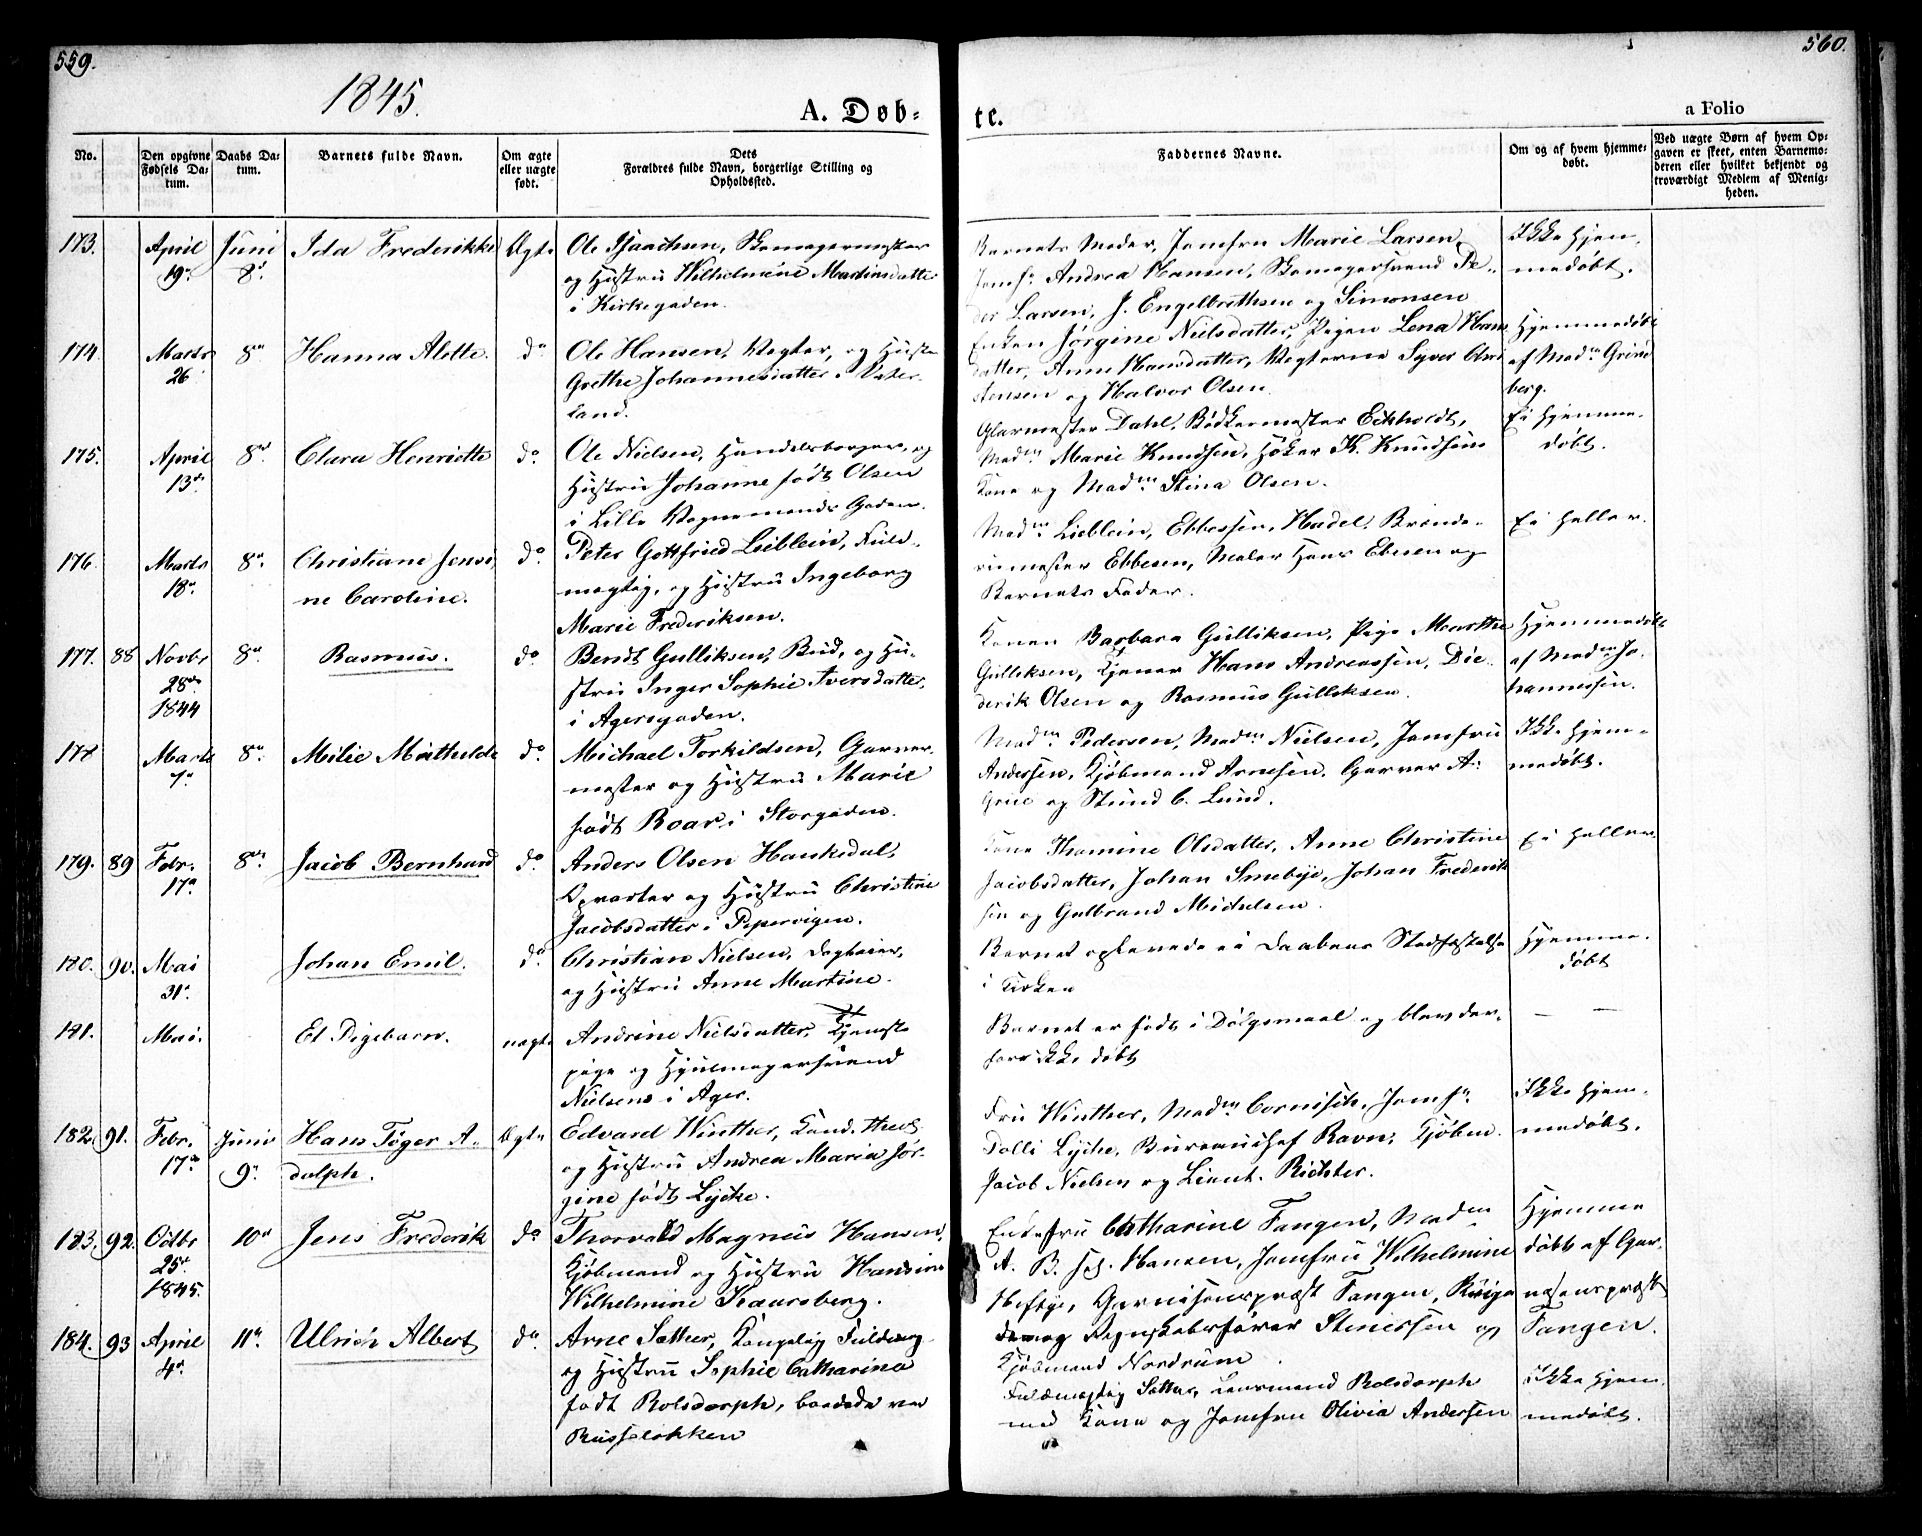 559.
560.
1845.
A. Døb-
te.
a Folio
No.
Den opgivne
Fødsels Da-
tum.
Daabs Da-
tum.
Barnets fulde Navn.
Om ægte
eller uægte
født.
Dets
Forældres fulde Navn, borgerlige Stilling og
Opholdssted.
Faddernes Navne.
Om og af hvem hjemme-
døbt.
Ved uægte Børn af hvem Op-
gaven er skeet, enten Barnemo-
deren eller hvilket bekjendt og
troværdigt Medlem af Menig-
heden.
173. April 19. Juni 8. Ida Frederikke Ægte
Ole Isachsen, Skomagermester
og Hustru Wilhelmine Martinsdatter
i Kirkegaden.
Barnets Moder, Jomfru Marie Larsen,
Jomf. Andrea Hansen, Skomagersvend Pe-
der Larsen, J. Engelbrethsen og Simonsen
Ikke hjem-
medøbt.
174. Marts 26 8 Hanna Alette. do
Ole Hansen, Vægter, og Hustru
Grethe Johannesdatter i Vater-
land.
Enken Jørgine Nielsdatter, Pigen Lena Hans
datter, Anne Hansdatter, Vægterne Syver Chri
stensen og Halvor Olsen.
Hjemmedøbt
af Madm Grind
berg.
175. April 13 8 Clara Henriette do
Ole Nielsen, Handelsborger, og
Hustru Johanne født Olsen
i Lille Vognmands Gaden.
Glarmester Dahl, Bødkermester Eckholdt,
Madm Marie Knudsen, Høker K. Knudsens
Kone og Madm Stina Olsen.
Ei hjemme-
døbt.
176. Marts 18. 8. Christiane Jensi
ne Caroline. do
Peter Gottfried Lieblein, Fuld-
mægtig, og Hustru Ingeborg
Marie Frederiksen.
Madm Lieblein, Ebbesen, Hudel, Brænde-
rimester Ebbesen, Maler Hans Ebesen og
Barnets Fader.
Ei heller.
177. 88 Novbr 28 1844 8. Rasmus. do
Bendt Gulliksen, Bud, og Hu-
stru Inger Sophie Iversdatter,
i Agersgaden.
Konen Barbara Gulliksen, Pige Marthe
Gulliksen, Tjener Hans Andreassen, Die-
derik Olsen og Rasmus Gulliksen.
Hjemmedøbt
af Madm Jo-
hannessen.
178 Marts 7. 8. Milie Mathilde do
Michael Torkildsen, Garver-
mester og Hustru Marie
født Roar i Storgaden.
Madm Pedersen, Madm Nielsen, Jomfru
Andersen, Kjøbmand Arnesen, Garver A.
Grue og Stud C. Lund.
Ikke hjem-
medøbt.
179. 89 Febr. 17 8 Jacob Bernhard do
Anders Olsen Hauksdal,
Opvarter og Hustru Christine
Jacobsdatter i Pipervigen.
Kone Thomine Olsdatter, Anne Christine
Jacobsdatter, Johan Smebye, Johan Frederik
sen og Gulbrand Michelsen.
Ei heller.
180. 90. Mai 31. Johan Emil. do
Christian Nielsen, Dagleier,
og Hustru Anne Martine.
Barnet oplevede ei Daabens Stadfæstelse
i Kirken
Hjemme-
døbt
181. Mai. Et Pigebarn. uægte
Andrine Nielsdatter, Tjeneste
pige og Hjulmagersvend
Nielsen i Ager.
Barnet er født i Dølgsmaal og blev der-
for ikke døbt
— —
182. 91. Febr. 17 Juni 9 Hans Tøger A-
dolph. Ægte
Edvard Winther, Kand. theol.
og Hustru Andrea Maria Jør-
gine født Lycke.
Fru Winther, Madm Cornisch, Jomf.
Dolli Lyche, Bureauchef Ravn, Kjøbm.
Jacob Nielsen og Lieut. Richter.
Ikke hjem-
medøbt.
183. 92. Octbr 25 1845. 10 Jens Frederik do
Thorvald Magnus Hansen,
Kjøbmand og Hustru Hansine
Wilhelmine
Enkefru Catharine Fangen, Madm
A. B. Hansen, Jomfru Wilhelmine
Heftye, Garnisonspræst Fangen,
Regnskabsfører Stenersen og
Kjøbmand Nordrum.
Hjemme
døbt af Gar-
nisonspræst
Fangen.
184. 93 April 4 11 Ulrich Albert do
Arne Sæther, Kongelig Fuldmæg.
og Hustru Sophie Catharina
født Rolsdorph, boende ved
Russeløkken
Fuldmægtig Sæther, Lensmand Rolsdorph
med Kone og Jomfru Olivia Andersen
Ikke hjem-
medøbt.